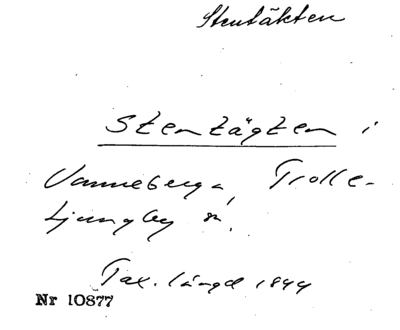 Stentäkten
Stentägten i
Vanneberga, Trolle-
Ljungby sn.
Tax. längd 1844
Nr 10877